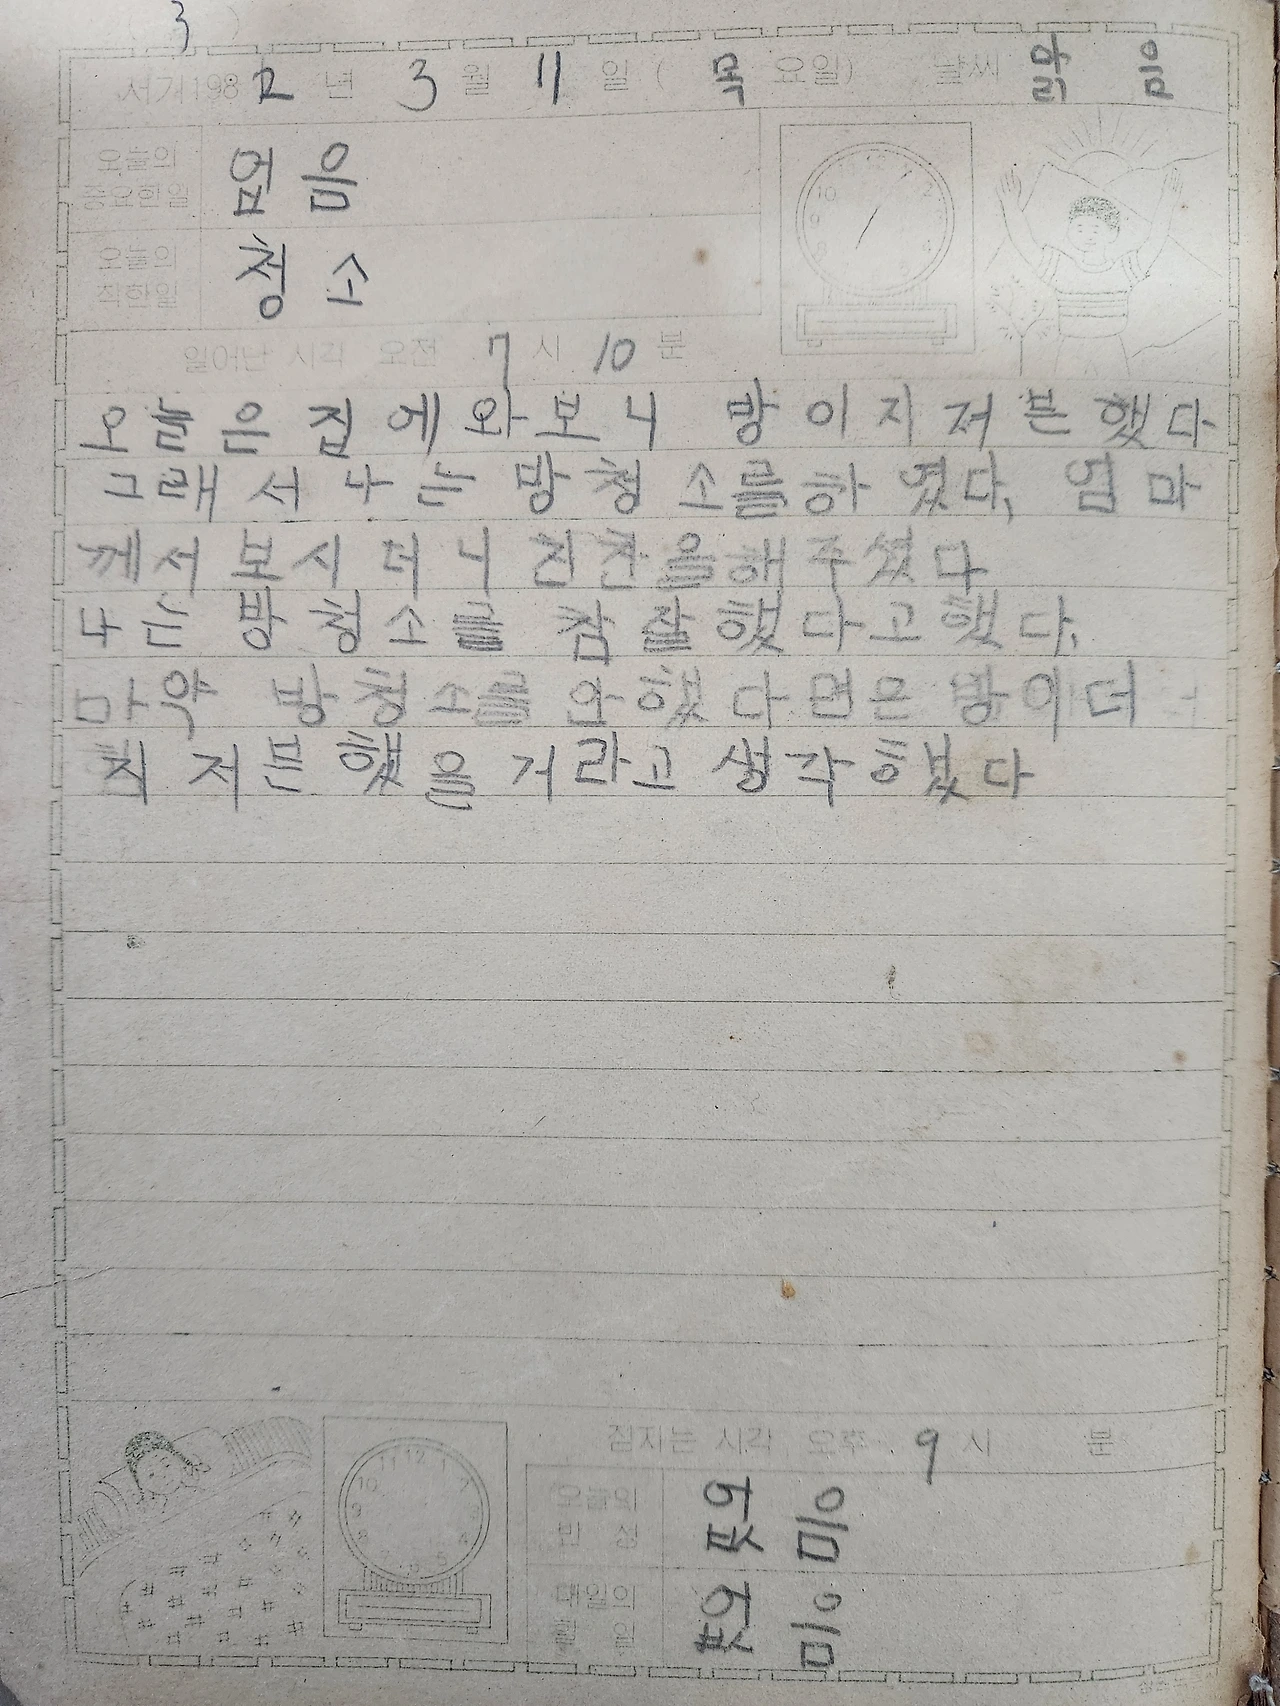 ( 3 )
서기1982년 3월 11일 (목요일) 날씨 맑음
오늘의 중요한일 없음
오늘의 착한일 청소
일어난 시각 오전 7시 10분
오늘은 집에와보니 방이지저분했다
그래서 나는 방청소를하였다, 엄마
께서 보시더니 친찬을해주셨다
나는 방청소를 참 잘했다고했다,
마약 방청소를 안했다면은 방이더
척 저분했을 거라고 생각했다
잠자는 시각 오후 9시 분
오늘의 반성 없음
내일의 할일 없음